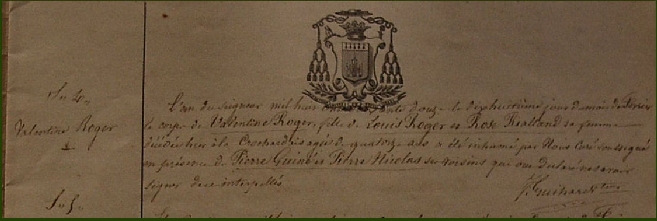 N. 4.
Valentine Roger
L'an du Seigneur mil huit cent soixante douze le dixhuitième jour du mois de Février
le corps de Valentine Roger, fille de Louis Roger et Rose Realland sa femme
décédée hier à la âgée de quatorze ans a été inhumé par Nous Curé soussigné
en présence de Pierre Guiné et Pierre Nicolas ses voisins qui ont déclaré ne savoir
signer de ce interpellés
N. 5.